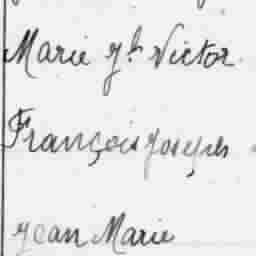 Marie Jh Victor
François Joseph
Jean Marie